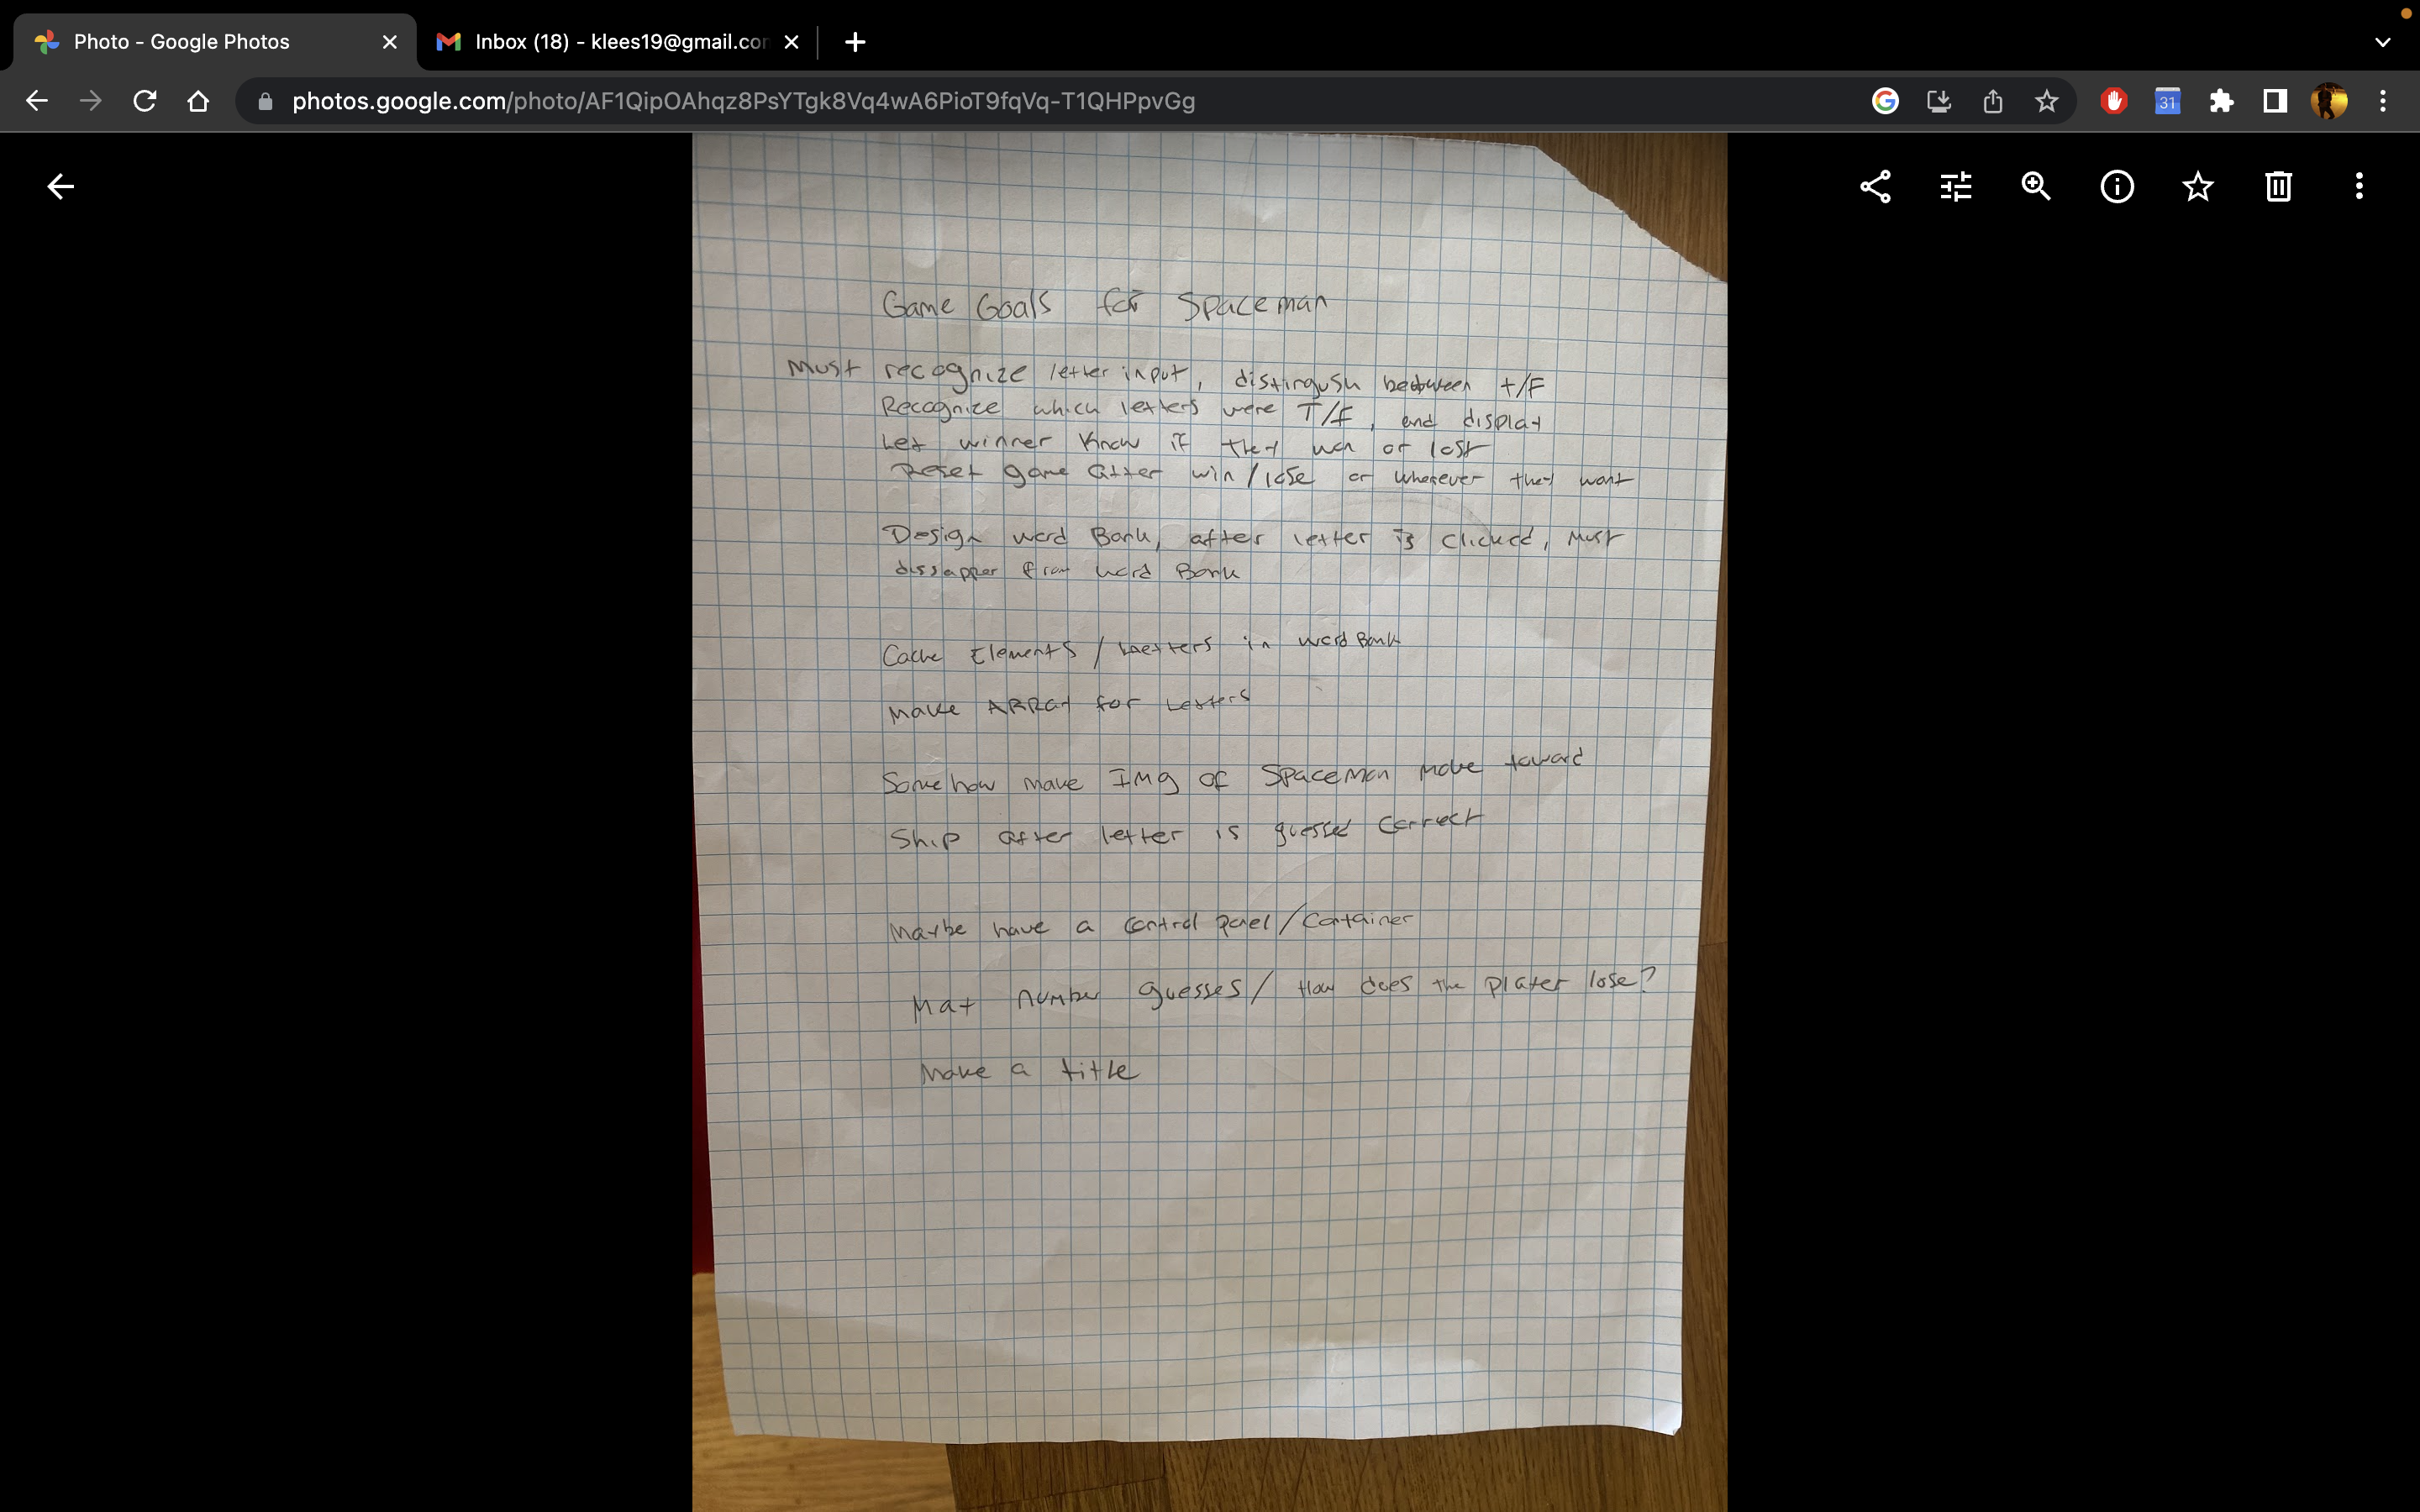 Photo - Google Photos
Inbox (18) - klees19@gmail.co
photos.google.com/photo/AF1QipOAhqz8PsYTgk8Vq4wA6PioT9fqVq-T1QHPpvGg
31
Game Goals for Spaceman
Must recognize letter input, distingush between t/F
Recognize which letters were T/F, and display
Let winner know if they won or lost
Reset game after win/lose or whenever they want
Design word Bank, after letter is clicked, must
dissapper from word Bank
Cache Elements / Letters in word Bank
Make ARRay for Letters
Somehow make IMg of Spaceman move toward
Ship after letter is guessed correct
Maybe have a control panel/Container
number guesses/ How does the player lose?
Make a title